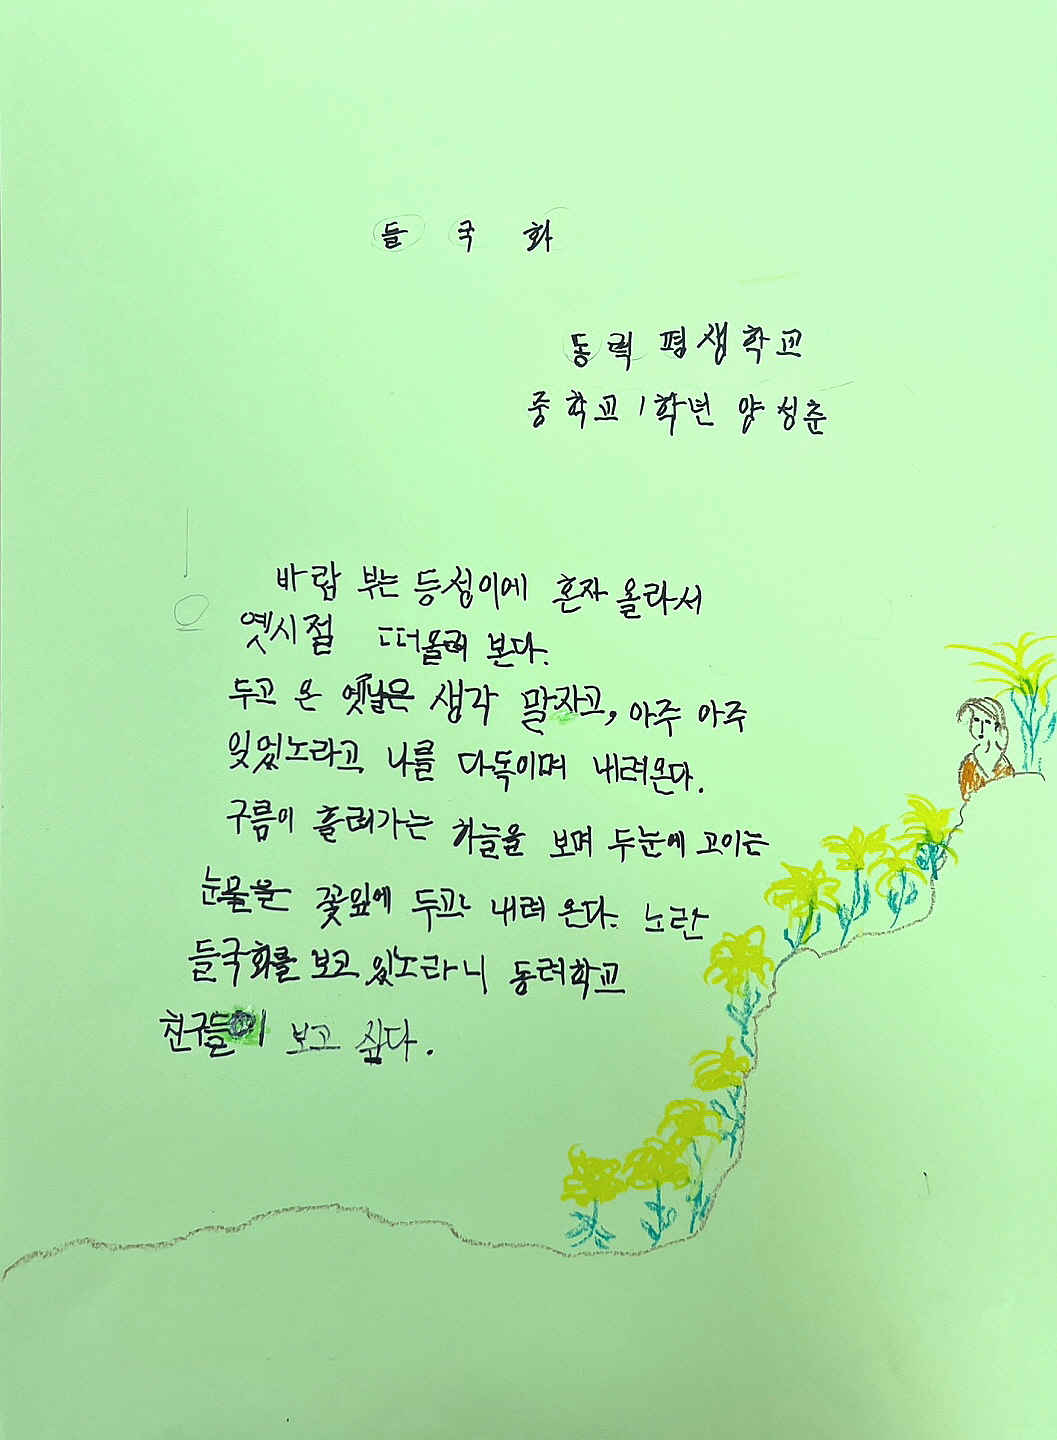 들국화
동력 평생학교
중학교 1학년 양성춘
바람 부는 등성이에 혼자 올라서
옛시절 떠올려 본다.
두고 온 옛날은 생각 말자고, 아주 아주
잊었노라고 나를 다독이며 내려온다.
구름이 흘러가는 하늘을 보며 두눈에 고이는
눈물을 꽃잎에 두고 내려 온다. 노란
들국화를 보고 있노라니 동려학교
친구들이 보고 싶다.